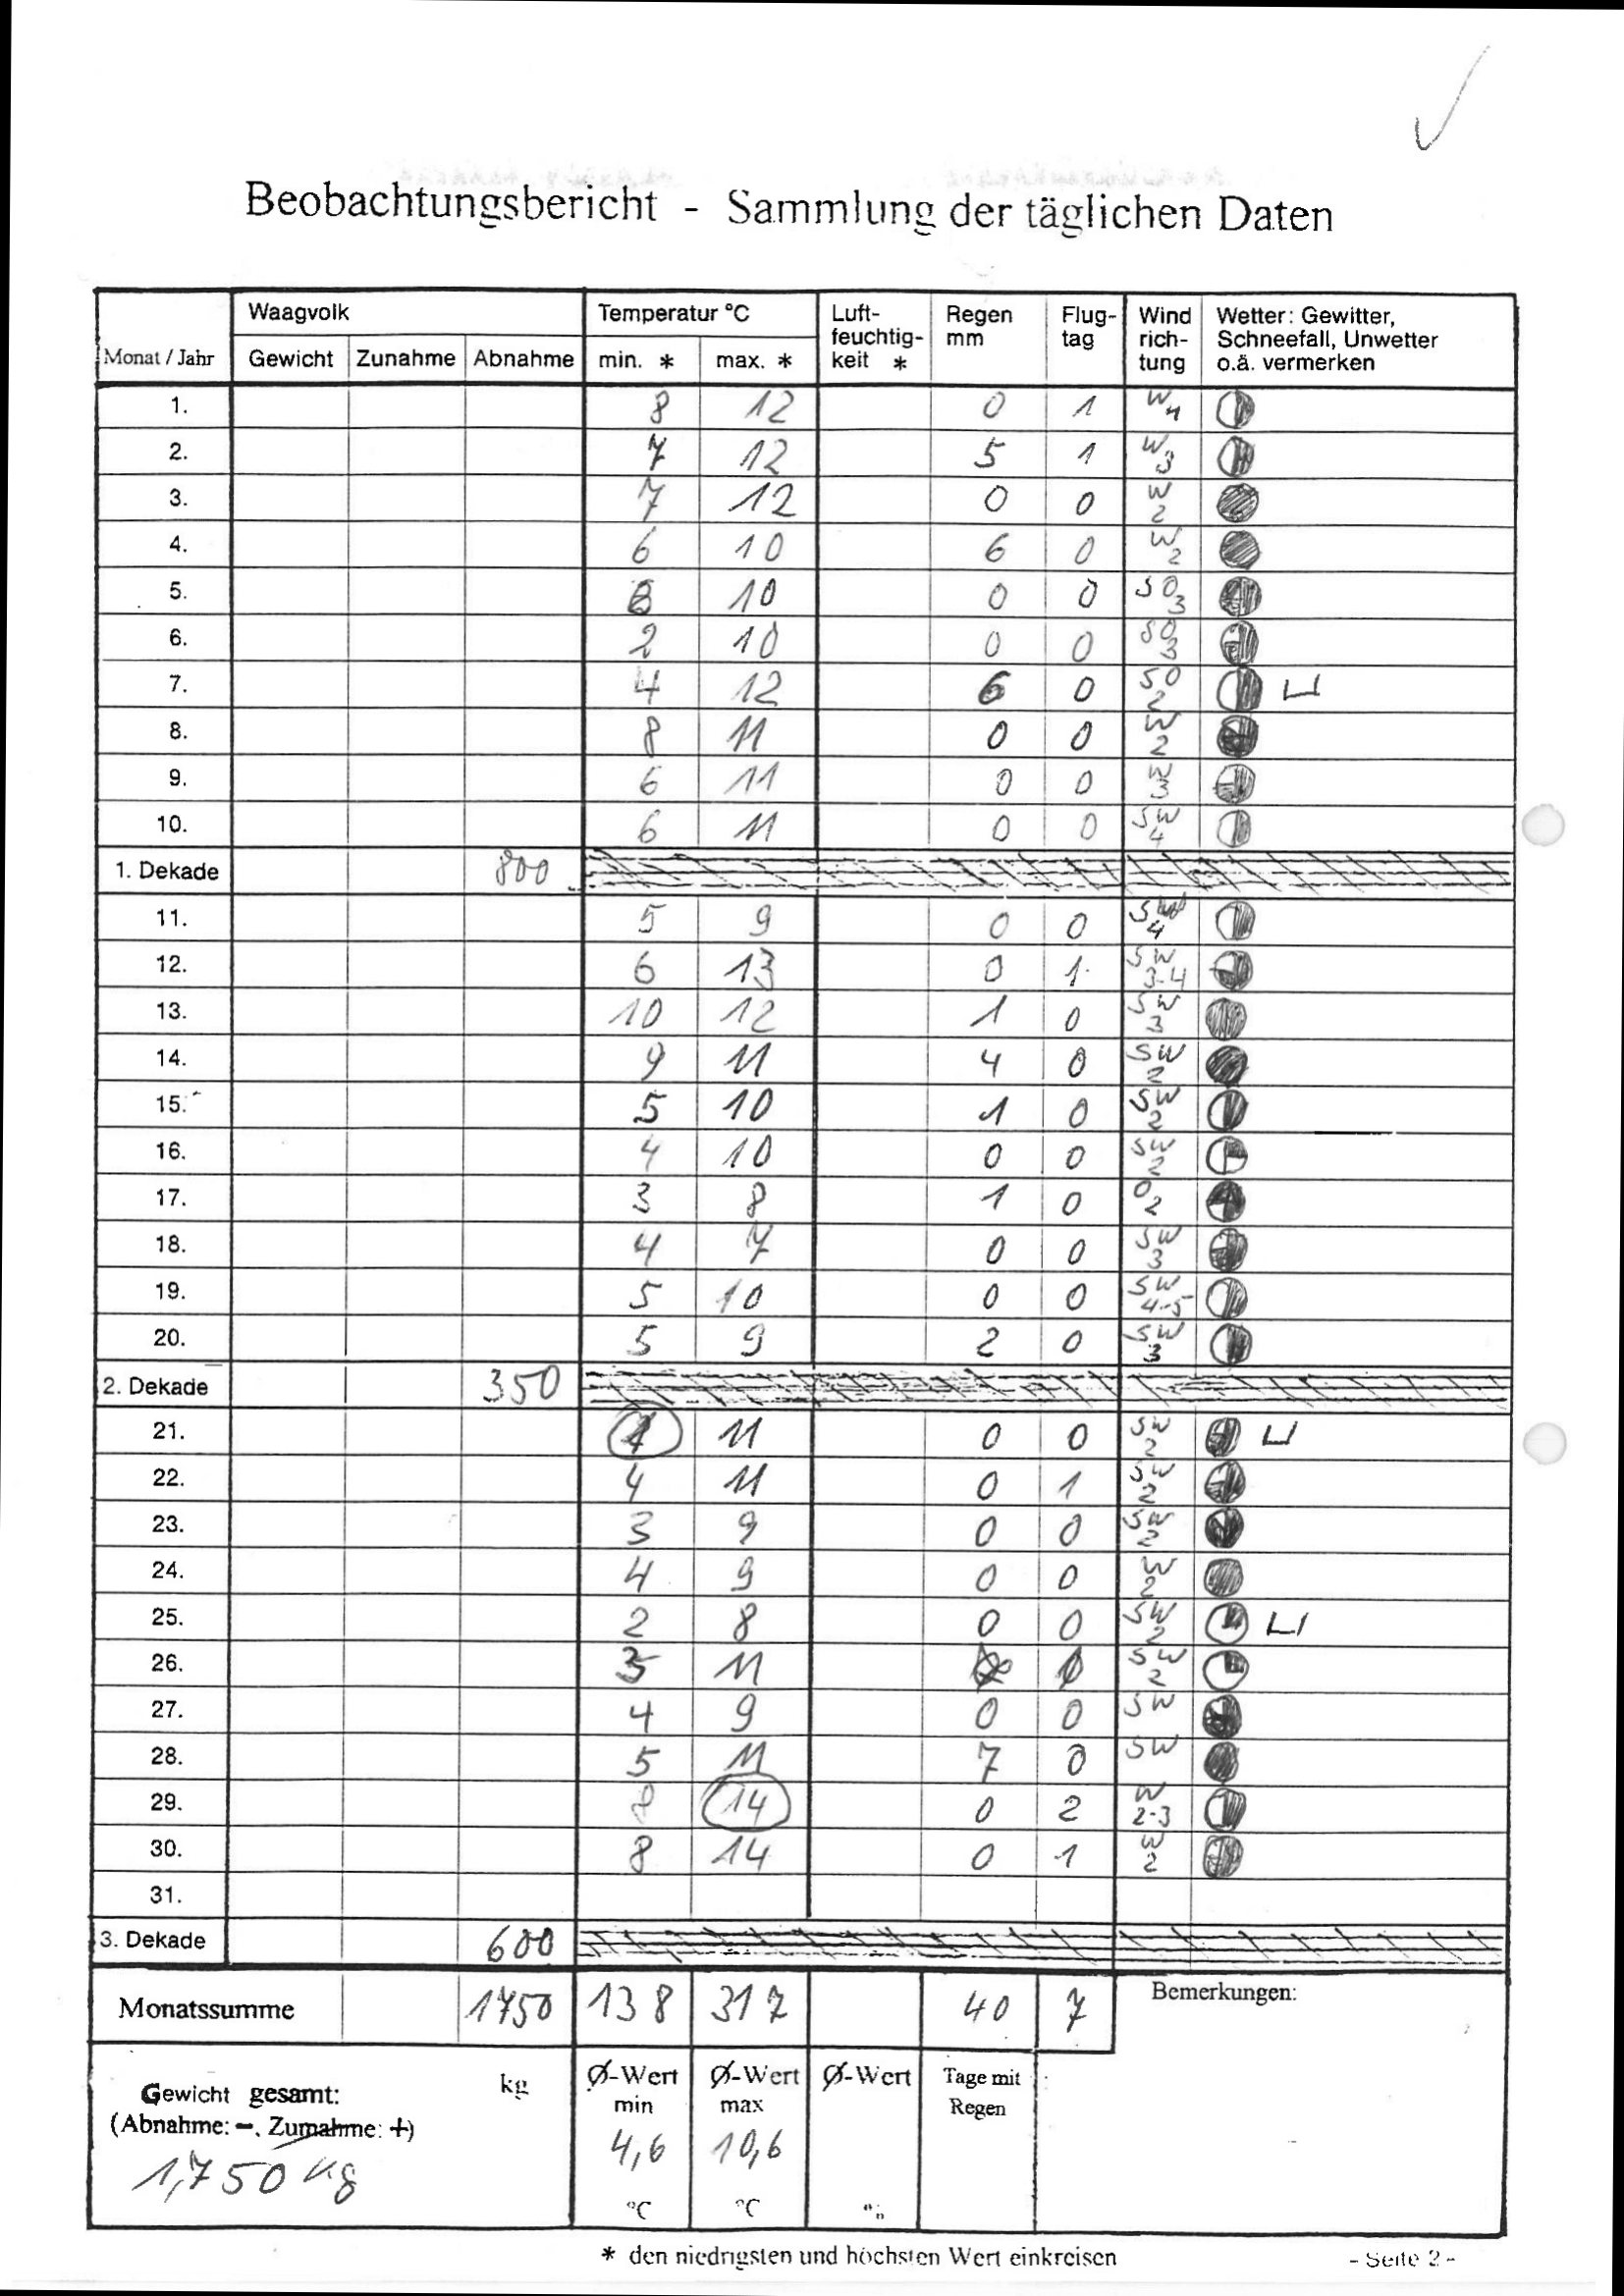 Beobachtungsbericht - Sammlung der täglichen Daten
Monat / Jahr Waagvolk Temperatur °C Luft-feuchtig-keit * Regen mm Flug-tag Wind rich-tung Wetter: Gewitter, Schneefall, Unwetter o.ä. vermerken
Gewicht Zunahme Abnahme min. * max. *
1. 8 12 0 1 W 4
2. 7 12 5 1 W 3
3. 7 12 0 0 W 2
4. 6 10 6 0 W 2
5. 10 0 0 SO 3
6. 2 10 0 0 SO 3
7. 4 12 6 0 SO 2
8. 8 11 0 0 W 2
9. 6 11 0 0 W 3
10. 6 11 0 0 SW 4
1. Dekade 800
11. 5 9 0 0 4
12. 6 13 0 1 SW 3-4
13. 10 12 1 0 SW 3
14. 9 11 4 0 SW 2
15. 5 10 1 0 SW 2
16. 4 10 0 0 SW 2
17. 3 8 1 0 O 2
18. 4 7 0 0 SW 3
19. 5 10 0 0 SW 4-5
20. 5 9 2 0 SW 3
2. Dekade 350
21. 1 11 0 0 SW 2
22. 4 11 0 1 SW 2
23. 3 9 0 0 SW 2
24. 4 9 0 0 W 2
25. 2 8 0 0 SW 2
26. 11 SW 2
27. 4 9 0 0 SW
28. 5 11 7 0 SW
29. 8 14 0 2 W 2-3
30. 8 14 0 1 W 2
31.
3. Dekade 600
Monatssumme 1750 138 317 40 7 Bemerkungen:
Gewicht gesamt: kg Ø-Wert min Ø-Wert max Ø-Wert Tage mit Regen
(Abnahme: -, Zunahme: +)
1,750 kg 4,6 10,6
°C °C
* den niedrigsten und höchsten Wert einkreisen - Seite 2 -